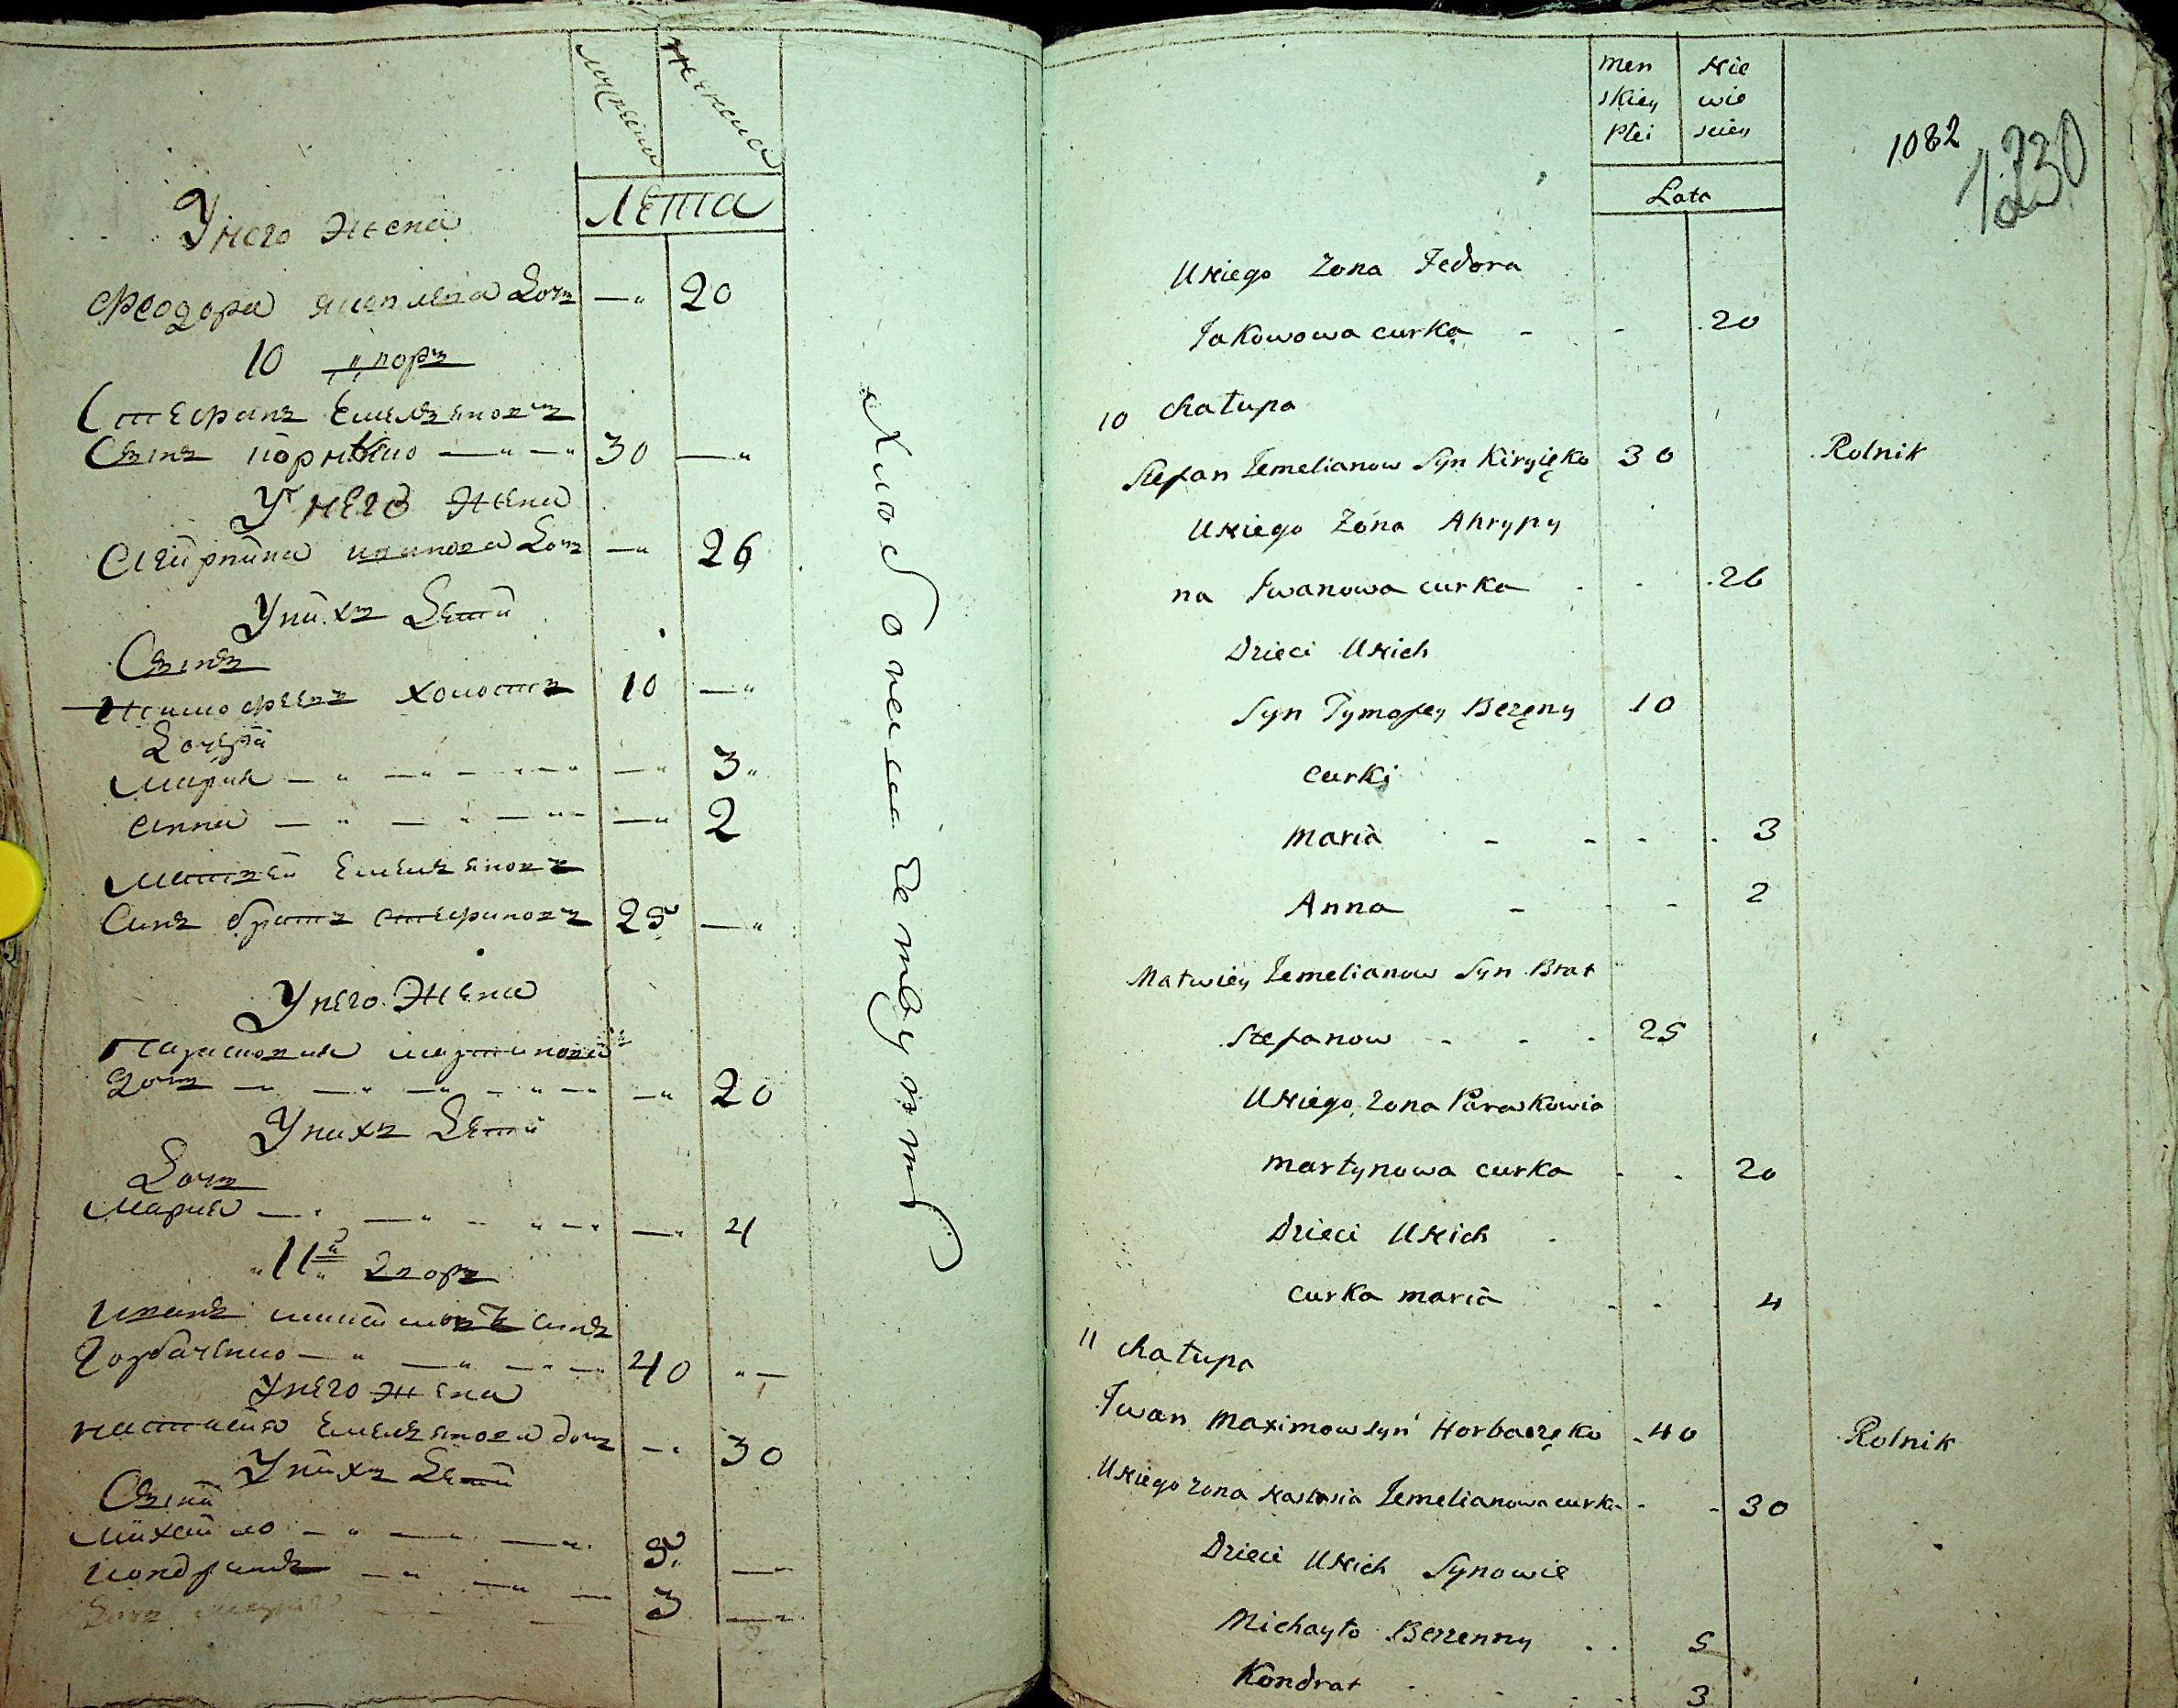 мужеска женска
Лета
У него жена
Феодора яковлева Дочь —„ 20
10 „ дворъ
Стефанъ Емельяновъ
Сынъ —„—„ 30 —„
У него жена
Агрипина иванова Дочь —„ 26
У нихъ Дети
Сынъ
Тимофеей холостъ 10 —„
Дочери
Мария —„ 3„
Анна —„ 2
Матвей Емельяновъ
Синъ братъ Стефановъ 25 —„
У него жена
Парасковия мартинова
Дочь —„ 20
У нихъ Дети
Дочь
Мария —„ 4
„11й„ Дворъ
Иванъ максимовъ синъ
Горбаченко —„ 40 „—
У него жена
Настасия Емельянова дочь —„ 30
У нихъ Дети
Сыни
Михайло —„ 5„ —„
Кондратъ —„ 3 —„
Дочь мария
Хлебопашествуютъ
Men Nie
skiey wie
Płci sciey
1082
1230
Lata
U Niego Zona Fedora
Jakowowa curka - - 20
10 Chałupa
Stefan Jemelianow Syn Kiryięko 30 Rolnik
U Niego Zona Ahrypy
na Iwanowa curka - - 26
Dzieci U Nich
Syn Tymofey Bezęny 10
curki
Maria - - - - 3
Anna - - - 2
Matwiey Jemelianow Syn Brat
Stefanow - - - 25
U Niego Zona Paraskowia
Martynowa curka - - 20
Dzieci U Nich
curka Maria - - - 4
11 Chałupa
Iwan Maximow syn Horbaczęko 40 Rolnik
U Niego zona Nastasia Jemelianowa curka - - 30
Dzieci U Nich Synowie
Michayło Bezzenny . . 5
Kondrat - - - 3